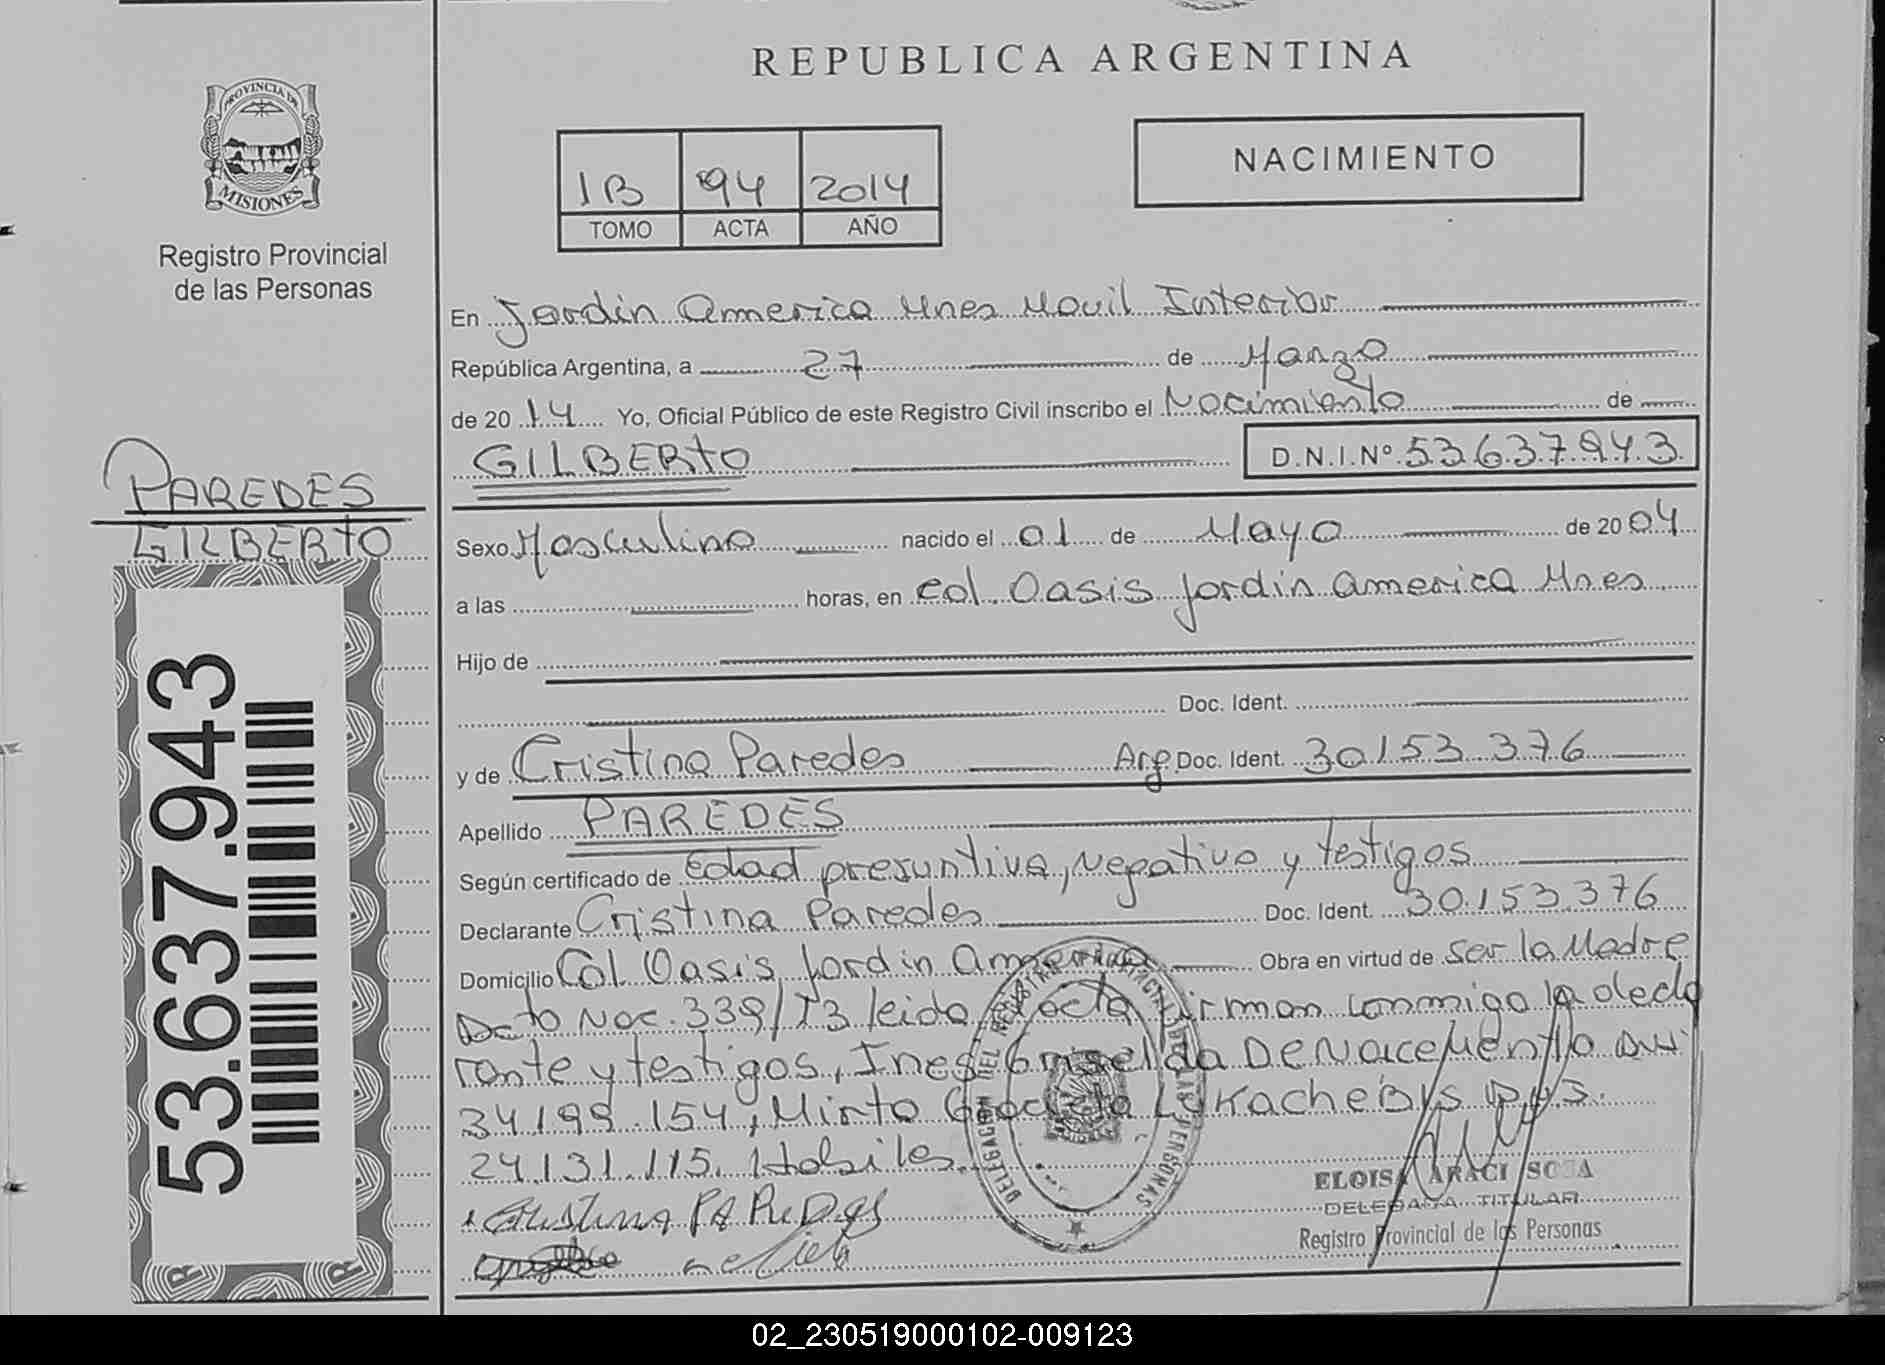 REPUBLICA ARGENTINA
PROVINCIA DE
MISIONES
Registro Provincial
de las Personas
1B 94 2014
TOMO ACTA AÑO
NACIMIENTO
En Jardin America Mnes Movil Interior
República Argentina, a 27 de Marzo
de 2014 Yo, Oficial Público de este Registro Civil inscribo el Nacimiento de
GILBERTO D.N.I.Nº 53637943
PAREDES
GILBERTO
53.637.943
Sexo Masculino nacido el 01 de Mayo de 2004
a las horas, en Col. Oasis Jardin America Mnes
Hijo de
Doc. Ident.
y de Cristina Paredes Arg Doc. Ident. 30153376
Apellido PAREDES
Según certificado de Edad presuntiva, negativo y testigos
Declarante Cristina Paredes Doc. Ident. 30.153.376
Domicilio Col Oasis Jardin America Obra en virtud de Ser la Madre
Dcto Nac. 339/13 leida el acta firman conmigo la decla
rante y testigos, Ines Griselda Denacemento DNI
34.199.154, Mirta Graciela Lukachebys DNI
24.131.115. Habiles.
CRISTINA PAREDES
DELEGACION DEL REGISTRO PROVINCIAL DE LAS PERSONAS
ELOISA ARACI SOSA
DELEGADA TITULAR
Registro Provincial de las Personas
02_230519000102-009123